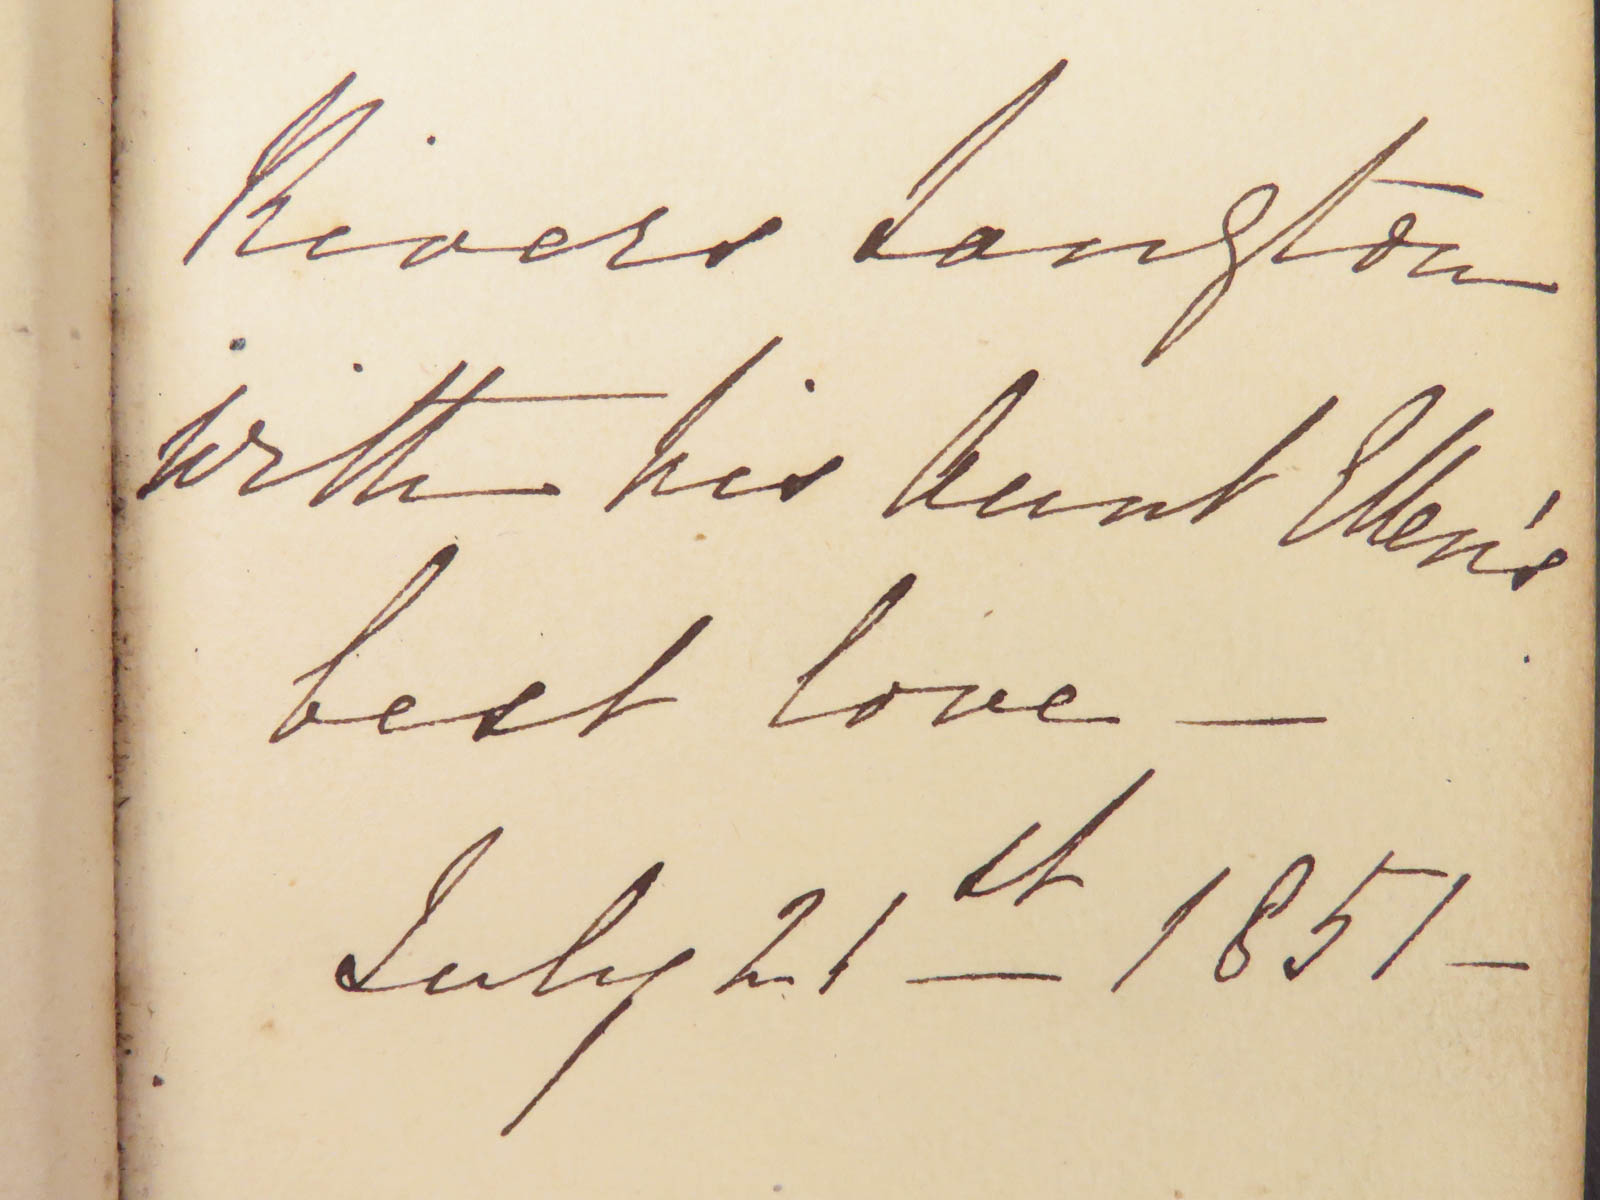 Rivers Langton
with his Aunt Ellen's
best love —
July 21st — 1851 —